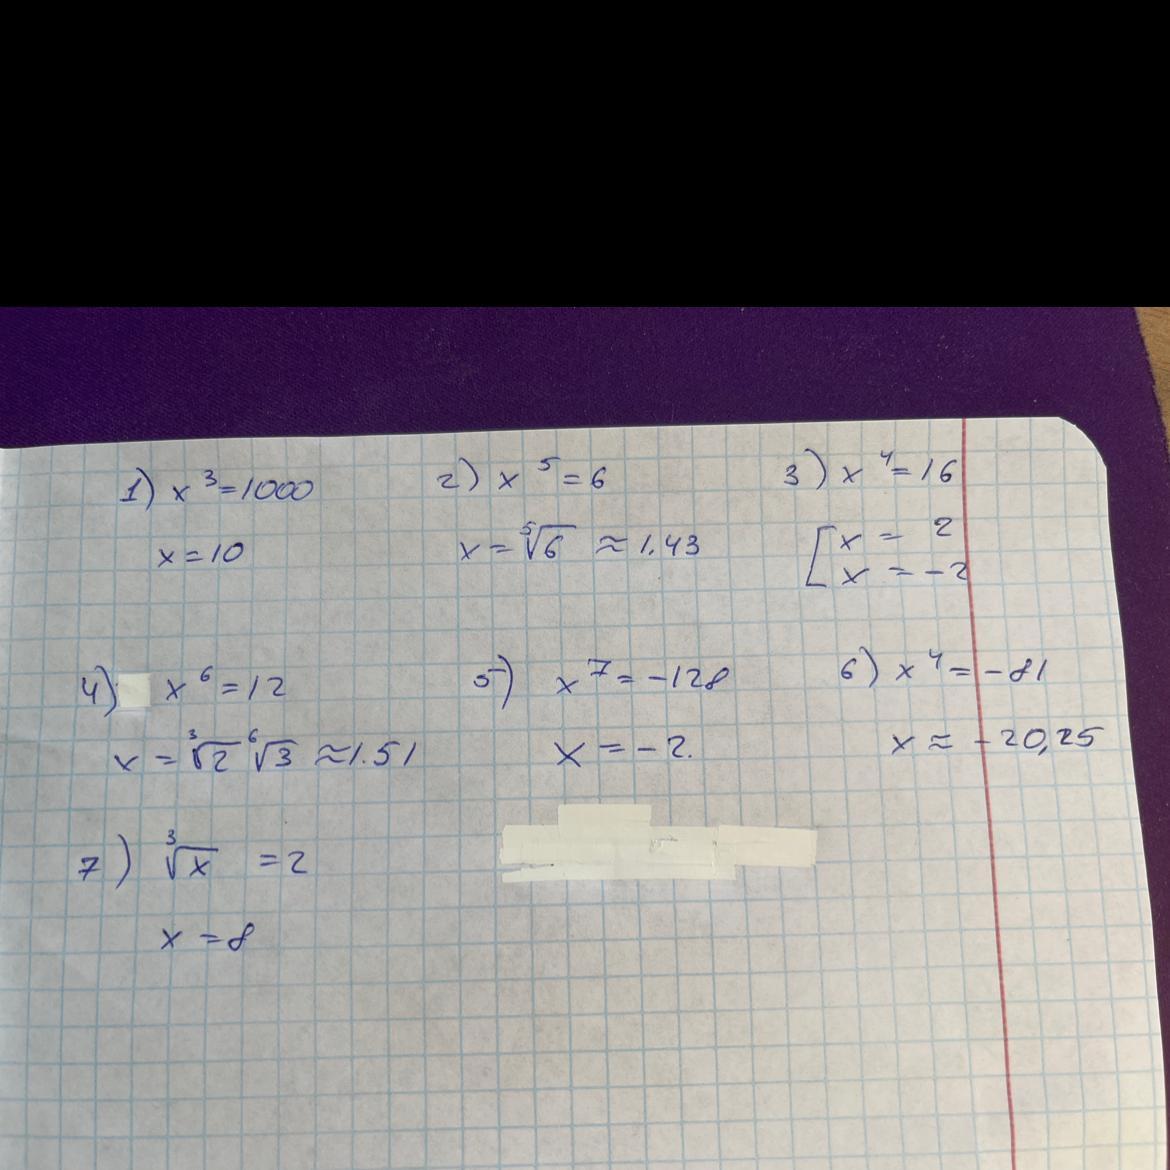 1) x³=1000
x=10
2) x⁵=6
x=⁵√6 ≈1.43
3) x⁴=16
[x = 2
x = -2
4) x⁶=12
x=³√2 ⁶√3 ≈1.51
5) x⁷=-128
x=-2.
6) x⁴=-81
x≈-20,25
7) ³√x =2
x=8